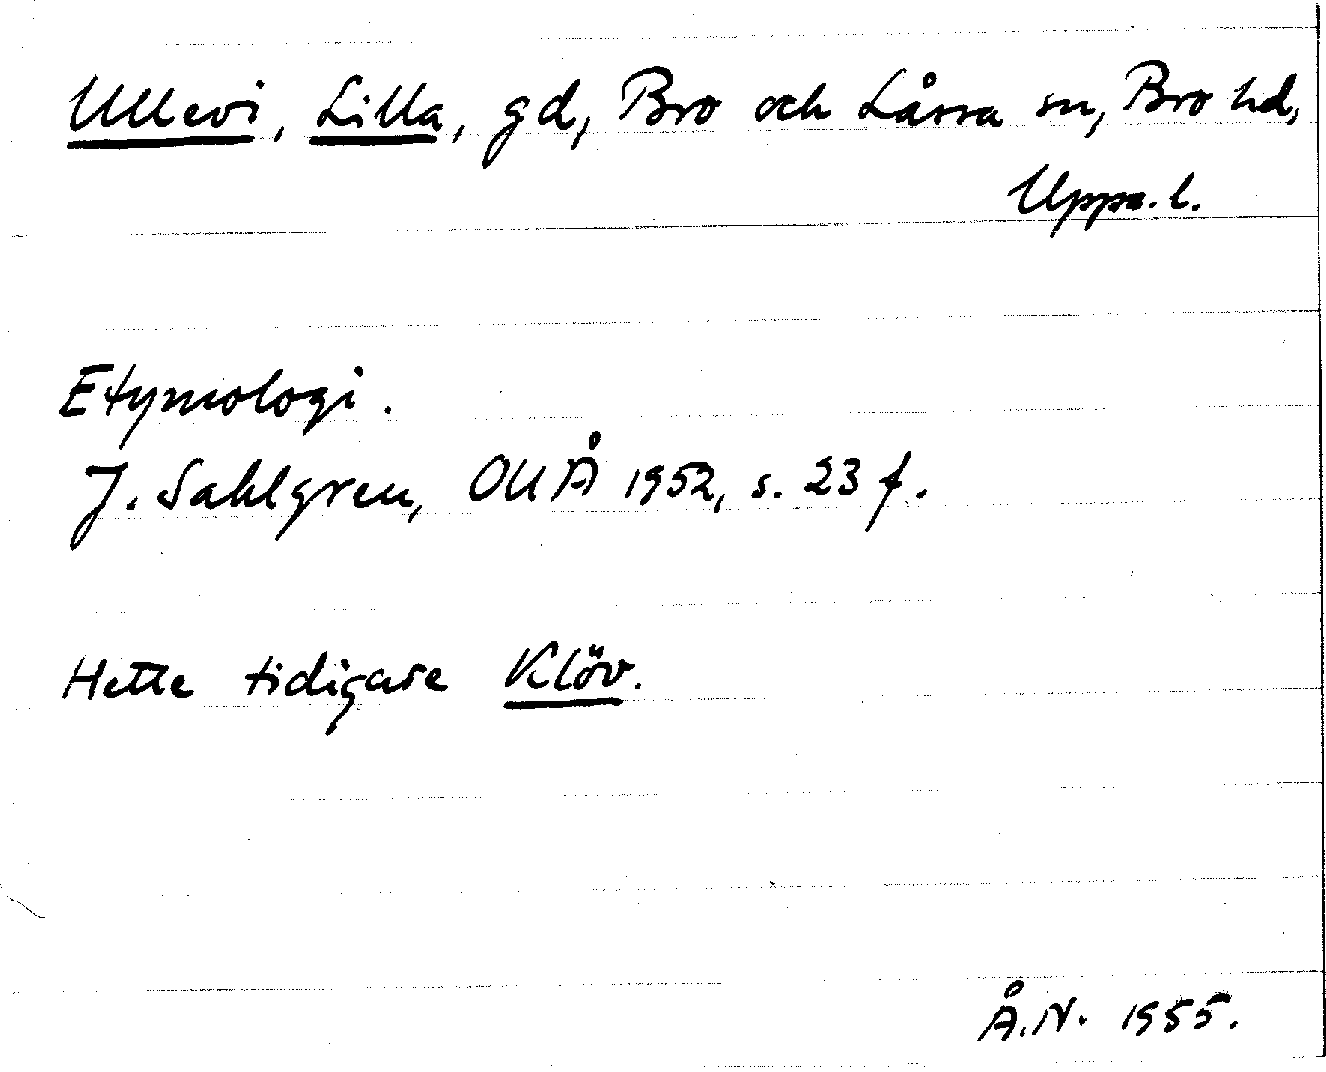 Ullevi, Lilla, gd, Bro och Låssa sn, Bro hd,
Upps. l.
Etymologi.
J. Sahlgren, OUÅ 1952, s. 23 f.
Hette tidigare Klöv.
Å.N. 1955.